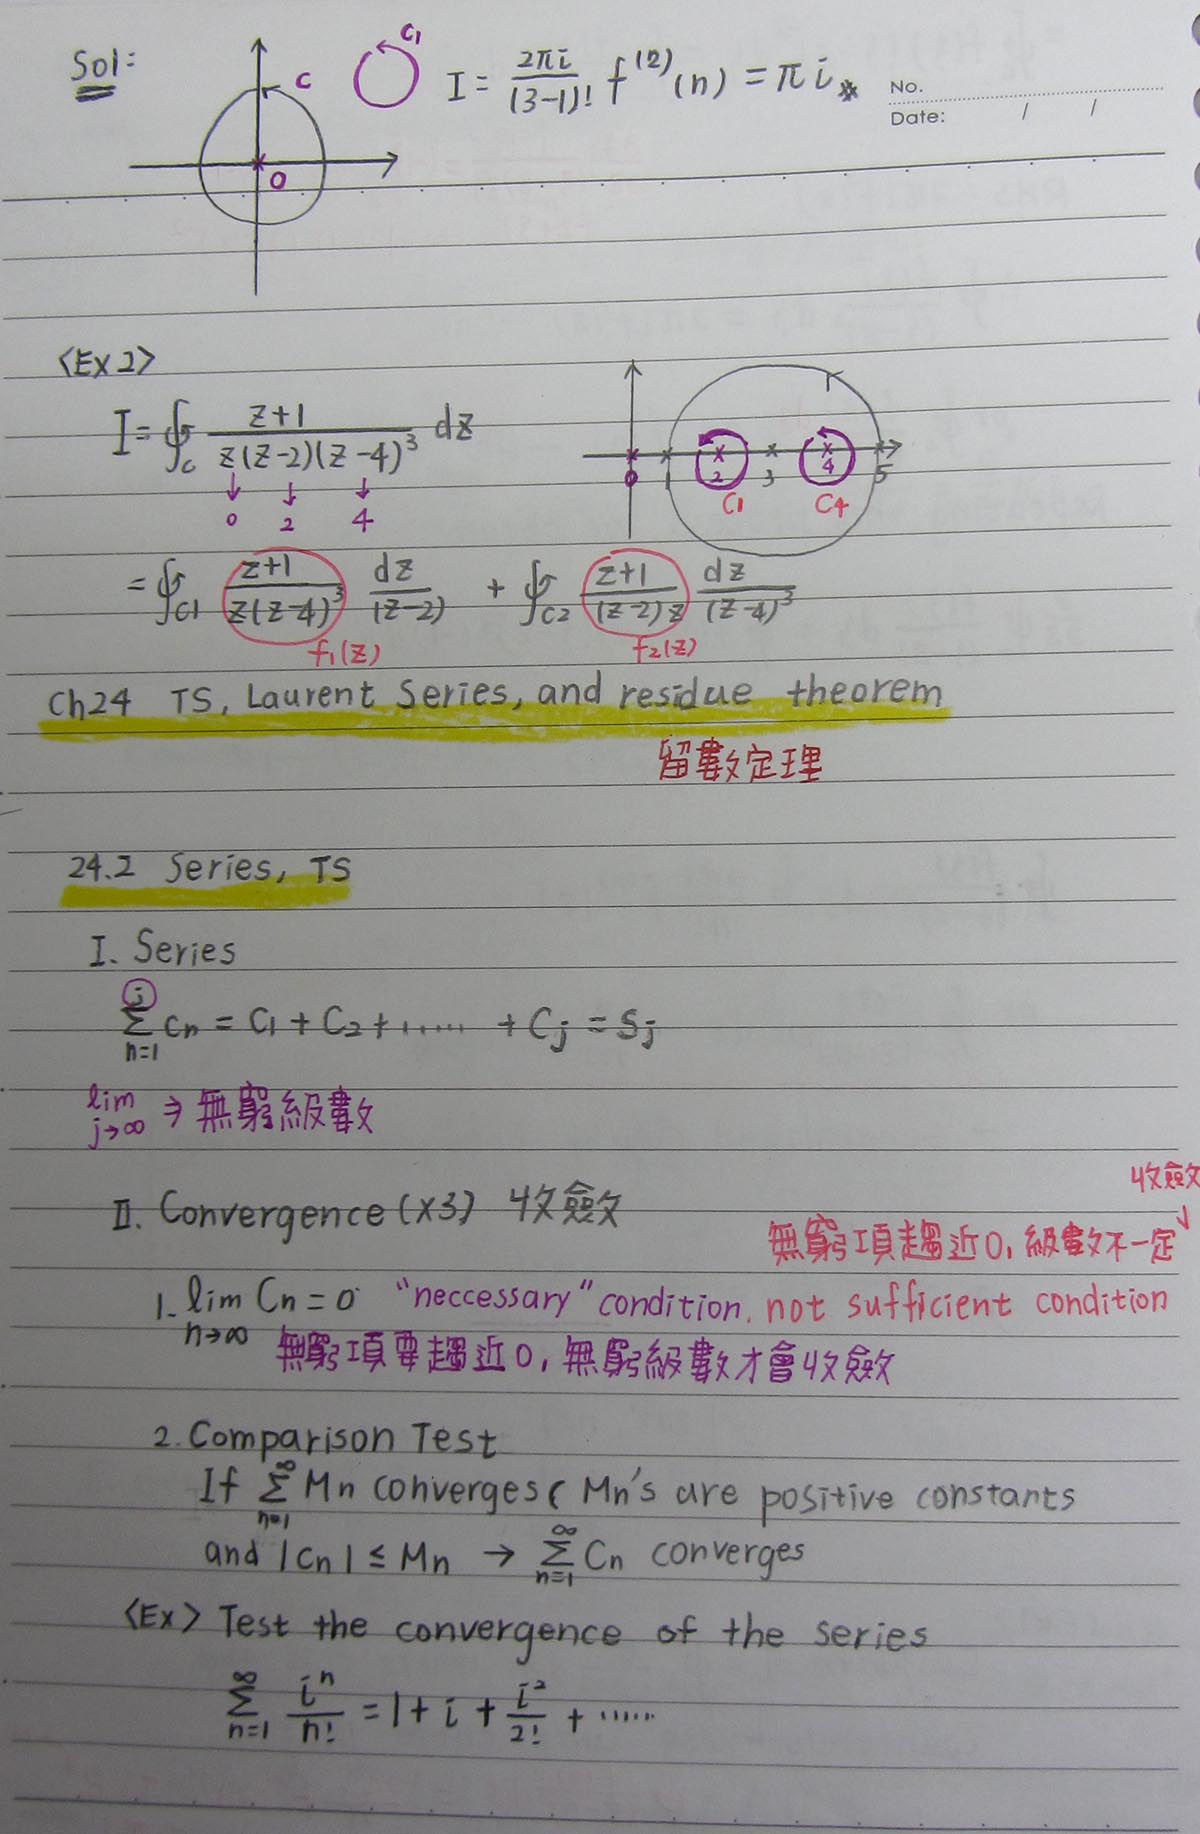 Sol:
C
C1
I = 2πi/(3-1)! f^(2)(n) = πi
No.
Date: / /
0
<Ex 2>
I = ∮_C (z+1)/(z(z-2)(z-4)^3) dz
↓ ↓ ↓
0 2 4
0 1 2 3 4 5
C1 C4
= ∮_C1 (z+1)/(z(z-4)^3) dz/(z-2) + ∮_C2 (z+1)/((z-2)z) dz/(z-4)^3
f1(z) f2(z)
Ch24 TS, Laurent Series, and residue theorem
留數定理
24.2 Series, TS
I. Series
Σ_{n=1}^{j} Cn = C1 + C2 + ...... + Cj = Sj
lim_{j→∞} ⇒ 無窮級數
收斂
II. Convergence (x3) 收斂
無窮項趨近0, 級數不一定↓
1. lim_{n→∞} Cn = 0 "neccessary" condition, not sufficient condition
無窮項要趨近0, 無窮級數才會收斂
2. Comparison Test
If Σ_{n=1}^{∞} Mn converges ( Mn's are positive constants
and |Cn| ≤ Mn → Σ_{n=1}^{∞} Cn converges
<Ex> Test the convergence of the series
Σ_{n=1}^{∞} i^n/n! = 1 + i + i²/2! + ......